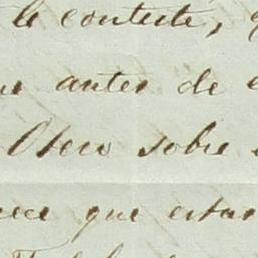 le conteste,
antes de
Otero sobre
que estas